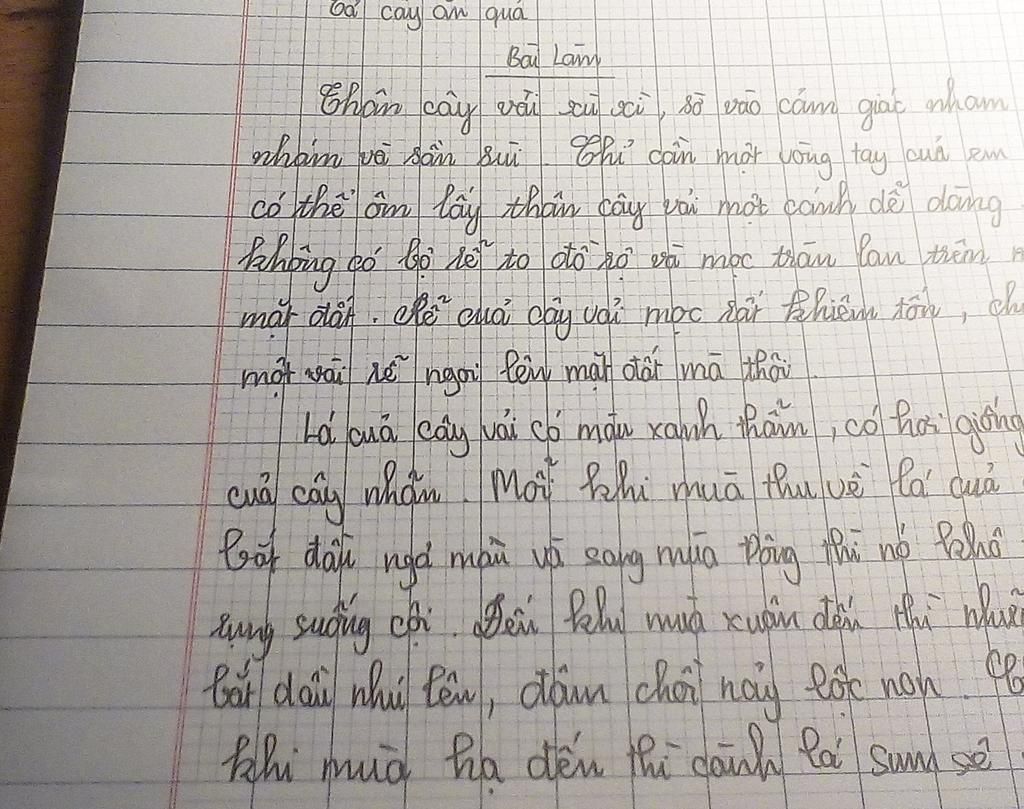 tả cây ăn quả
Bài Làm
Thân cây vải xù xì, sờ vào cảm giác nham
nhám và sần sùi. Chỉ cần một vòng tay của em
có thể ôm lấy thân cây vải một cánh dễ dàng
không có bộ rễ to đồ sộ và mọc tràn lan trên
mặt đất. Rễ của cây vải mọc rất khiêm tốn, ch
một vài rễ ngoi lên mặt đất mà thôi.
Lá của cây vải có màu xanh thẫm, có hơi giống
của cây nhãn. Mỗi khi mùa thu về lá của
bắt đầu ngả màu và sang mùa Đông thì nó khô
rụng suống cội. Đến khi muà xuân đến thì nhuê
bắt dầu nhú lên, đâm chồi nảy lộc non.
khi muà hạ đến thì cành lá sum sê